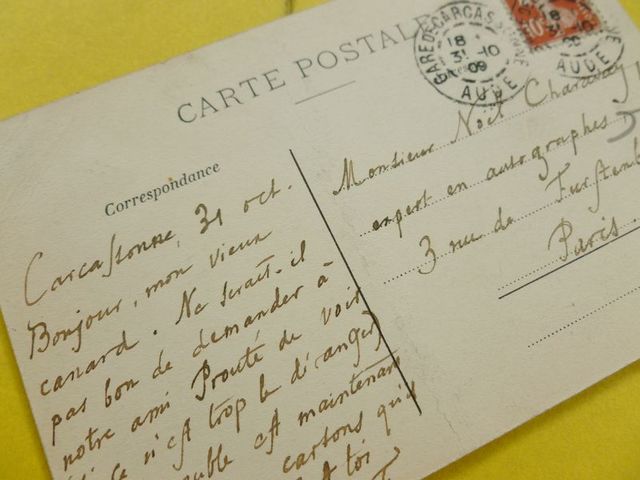 CARTE POSTALE
GARE DE CARCASSONNE
18
31-10
09
AUDE
18
31
AUDE
Correspondance
Carcassonne, 31 oct.
Bonjour, mon vieux
canard. Ne serait-il
pas bon de demander à
notre ami Prouté de voir
ce n'est trop le déranger,
est maintenant
cartons qu'il
toi
Monsieur Noël Charavay
expert en autographes
3 rue de Furstenb
Paris